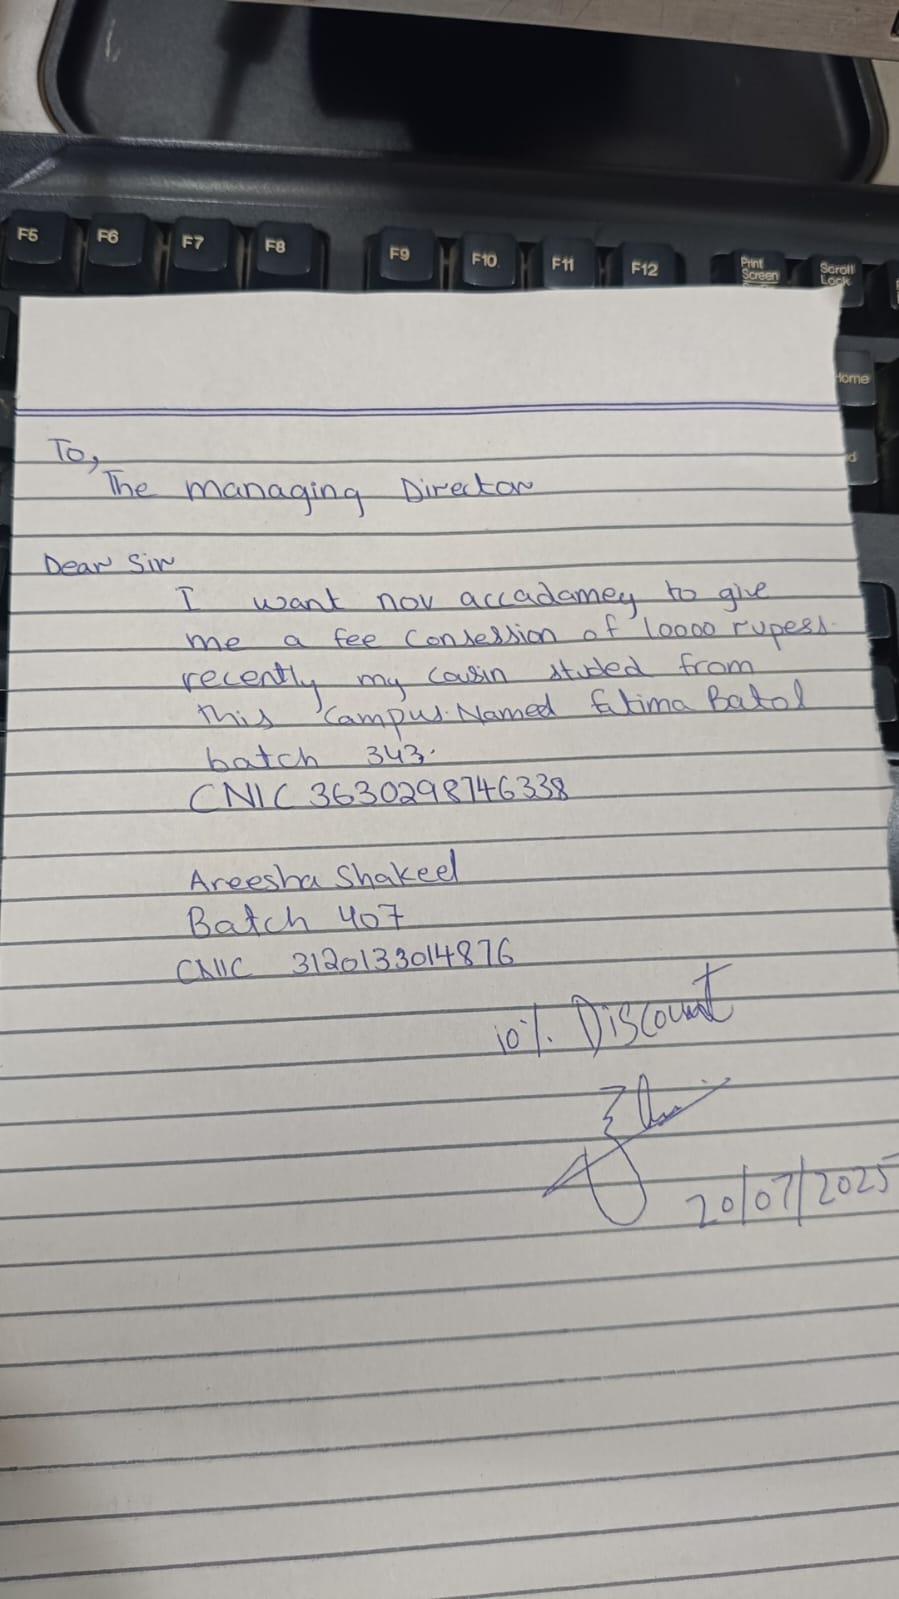 F5 F6 F7 F8 F9 F10 F11 F12 Print Screen Scroll Lock
Home
To,
The managing Director
Dear Sir
I want nov accadamey to give
me a fee Consession of 10000 rupess.
recently my cousin studed from
this campus. Named Fatima Batol
batch 343.
CNIC 3630298746338
Areesha Shakeel
Batch 407
CNIC 3120133014876
10%. Discount
20/07/2025